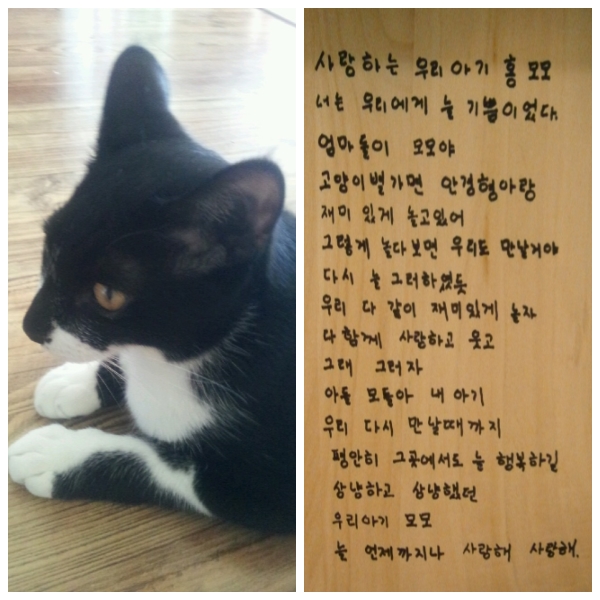 사랑하는 우리아기 홍 모모
너는 우리에게 늘 기쁨이었다.
엄마들이 모모야
고양이별가면 안경형아랑
재미 있게 놀고있어
그렇게 놀다보면 우리도 만날거야
다시 늘 그러하였듯
우리 다 같이 재미있게 놀자
다 함께 사랑하고 웃고
그래 그러자
아들 모돌아 내 아기
우리 다시 만날때까지
평안히 그곳에서도 늘 행복하길
상냥하고 상냥했던
우리아기 모모
늘 언제까지나 사랑해 사랑해.